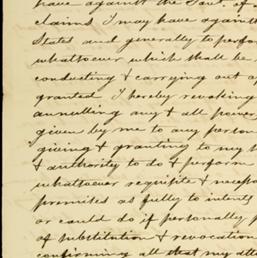 have against the Govt. of
claims I may have against
States and generally to perform
whatsoever which shall be
conducting & carrying out a
granted I hereby revoking
annulling any & all power
given by me to any person
giving & granting to my
& authority to do & perform
whatsoever requisite & necess
premises as fully to intents
or could do if personally p
of substitution & revocation
confirming all that my atto